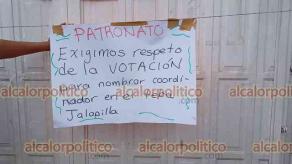 PATRONATO
Exigimos respeto
de la VOTACIÓN
para nombrar coordi-
nador en el
Jalapilla
alcalorpolitico
alcalorpolitico
alcalorpolitico
alcalorpolitico
alcalorpolitico
.com